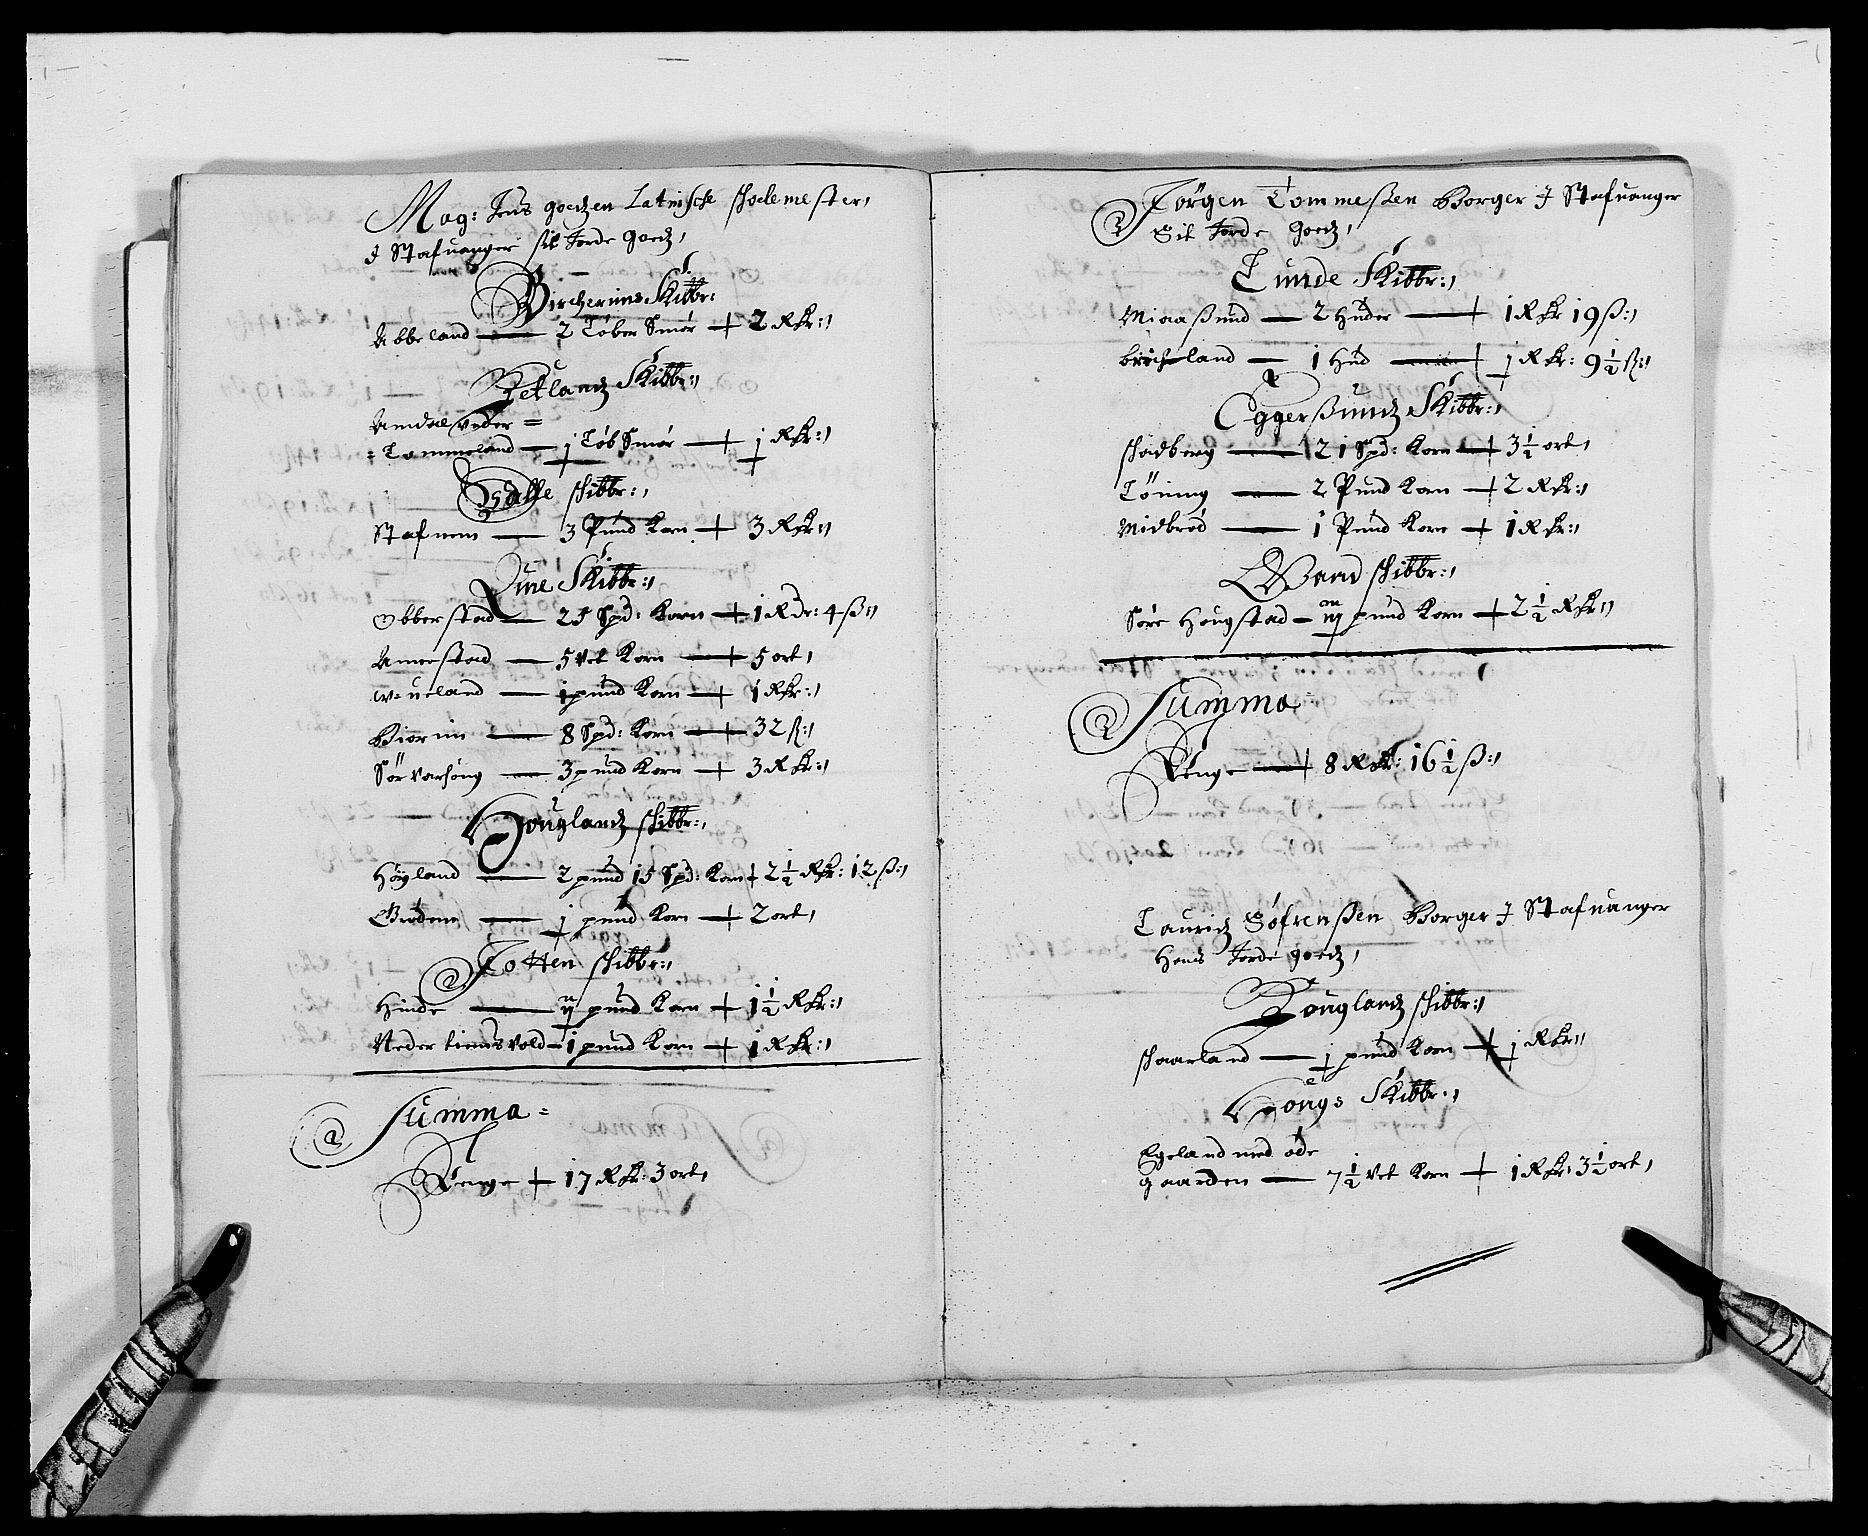 Mag: Jens goedzen Latinsche skolemester,
J Stafuanger sit Jorde goedz,
Bircherims Skibbr:
Abbeland — 2 Løber Smør + 2 Rdr:,
Jetlandz Skibbr:,
Amdal veder =
= Tommeland — j Løb Smør + j Rdr:,
Gialle skibbr:,
Stafnem — 3 Pund Korn + 3 Rdr:,
Qine Skibbr:,
Obberstad — 25 Spd: Korn + 1 Rdr: 4 ß:,
Amerstad — 5 Vet Korn + 5 ort,
Weueland — 1 pund Korn + 1 Rdr:,
Biornn — 8 Spd: Korn + 32 ß:,
Sør Varhoug — 3 pund Korn + 3 Rdr:,
Houglandz skibbr:,
Høgland — 2 pund 15 Spd: Korn + 2½ Rdr: 12 ß:,
Grødem — j pund Korn + 2 ort,
Jotten skibbr:,
Hinde — ij pund Korn + 1½ Rdr:,
Neder tiensvold — 1 pund Korn + 1 Rdr:,
Summa =
Penge + 17 Rdr: 3 ort,
Jørgen Tommeßen Borger J Stafuanger
Sit Jorde goedz,
Lunde Skibbr:,
Miaaßund — 2 Huder + 1 Rdr 19 ß:,
birchland — 1 Hud + j Rdr: 9½ ß:,
Eggerßundz Skibbr:,
skadberg — 21 Spd: Korn + 3½ ort,
Tøning — 2 Pund Korn + 2 Rdr:,
Midbrød — 1 Pund Korn + 1 Rdr:,
Waard skibbr:,
Søre Hougstad — iij pund Korn + 2½ Rdr:,
Summa
Penge + 8 Rdr: 16½ ß:,
Lauridz Søfrenßen Borger J Stafuanger
Hans Jorde goedz,
Houglandz skibbr:,
skaarland — j pund Korn + j Rdr:,
Hougs Skibbr:,
Egeland med øde
gaarden — 7½ Vet Korn + 1 Rdr: 3½ ort,